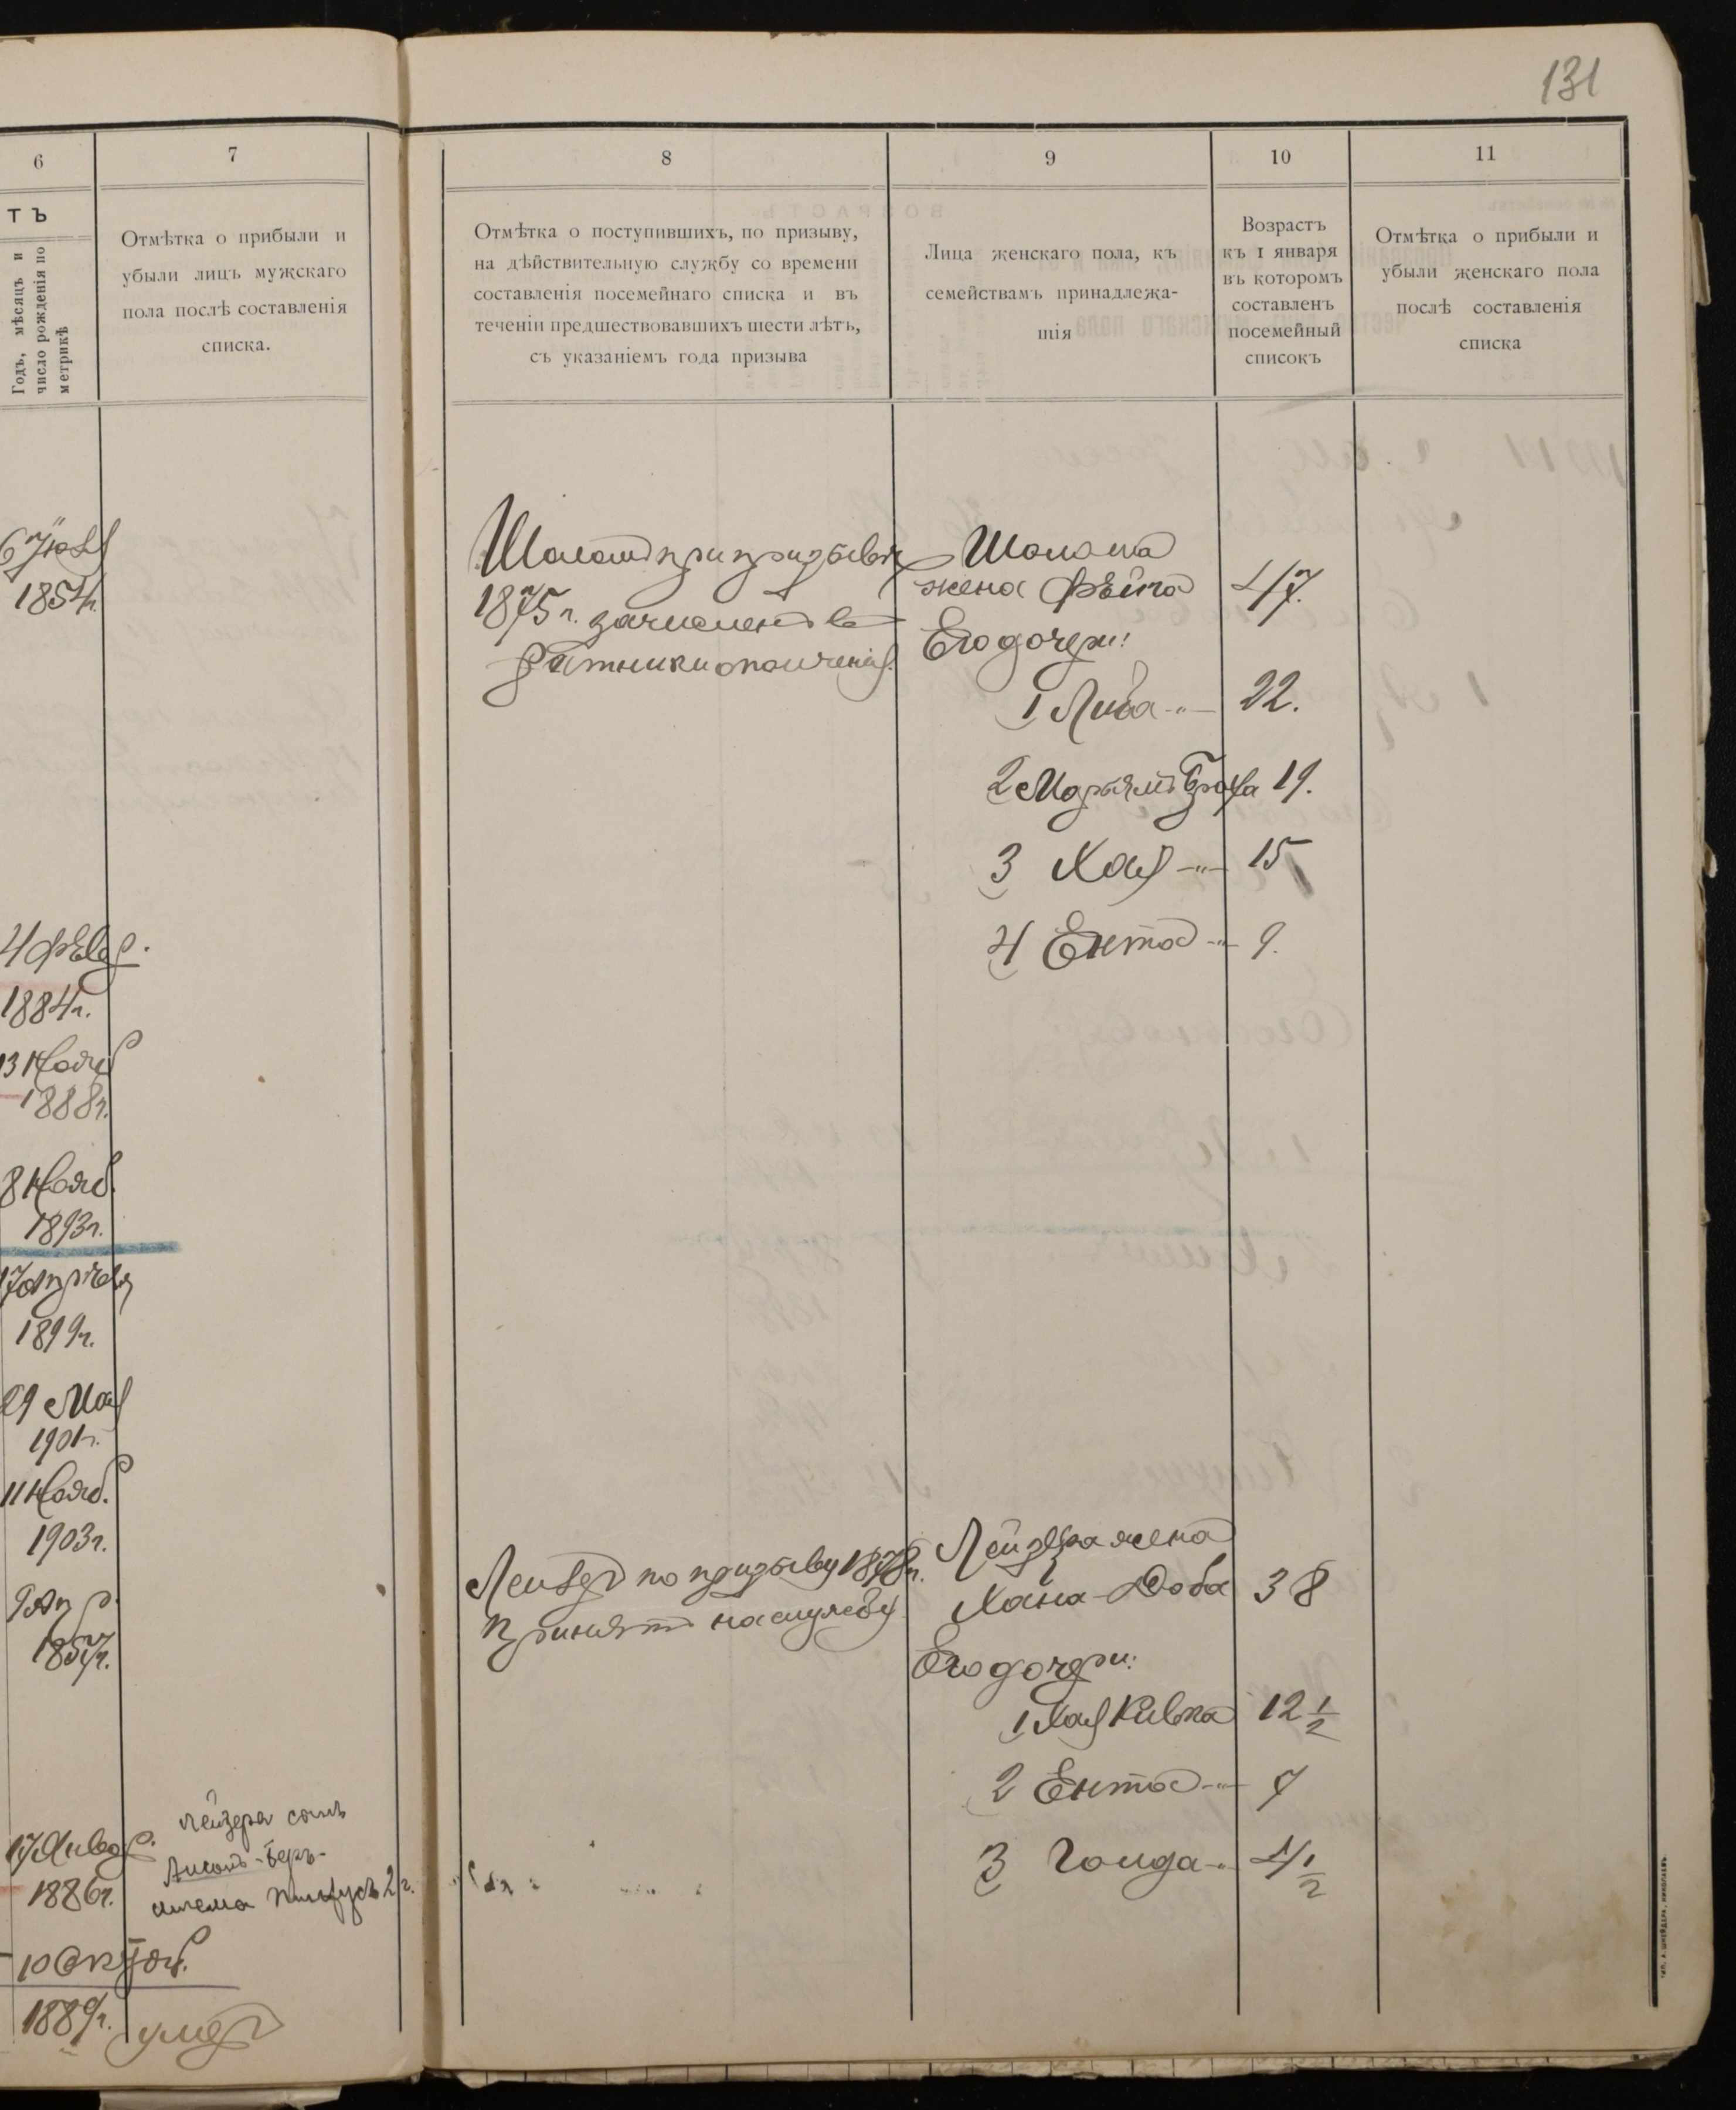 131
6
7
8
9
10
11
тъ
Годъ, мѣсяцъ и
число рожденія по
метрикѣ
Отмѣтка о прибыли и
убыли лицъ мужскаго
пола послѣ составленія
списка.
Отмѣтка о поступившихъ, по призыву,
на дѣйствительную службу со времени
составленія посемейнаго списка и въ
теченіи предшествовавшихъ шести лѣтъ,
съ указаніемъ года призыва
Лица женскаго пола, къ
семействамъ принадлежа-
щія
Возрастъ
къ 1 января
въ которомъ
составленъ
посемейный
списокъ
Отмѣтка о прибыли и
убыли женскаго пола
послѣ составленія
списка
1854г.
4 Февр.
1884г.
13 Нояб
1888г.
8 Нояб.
1893г.
17 Апрѣля
1899г.
29 Мая
1901г.
11 Нояб.
1903г.
9 Апр.
1857г.
17 Январ.
1886г.
10 Октяб.
1889г.
Лейзера сынъ
умеръ
Шоломъ при призывѣ
1875 г. зачисленъ въ
ратники ополченія.
Лейзеръ по призыву 1878г.
принятъ на службу
Шолома
жена Фейга 47.
Его дочери:
1 Либа -"- 22.
2 Марьямъ Броха 19.
3 Хая -"- 15
4 Ента -"- 9.
Лейзера жена
Хана-Доба 38
Его дочери:
1 Хая Ривка 12 1/2
2 Ента -"- 7
3 Голда -"- 4 1/2